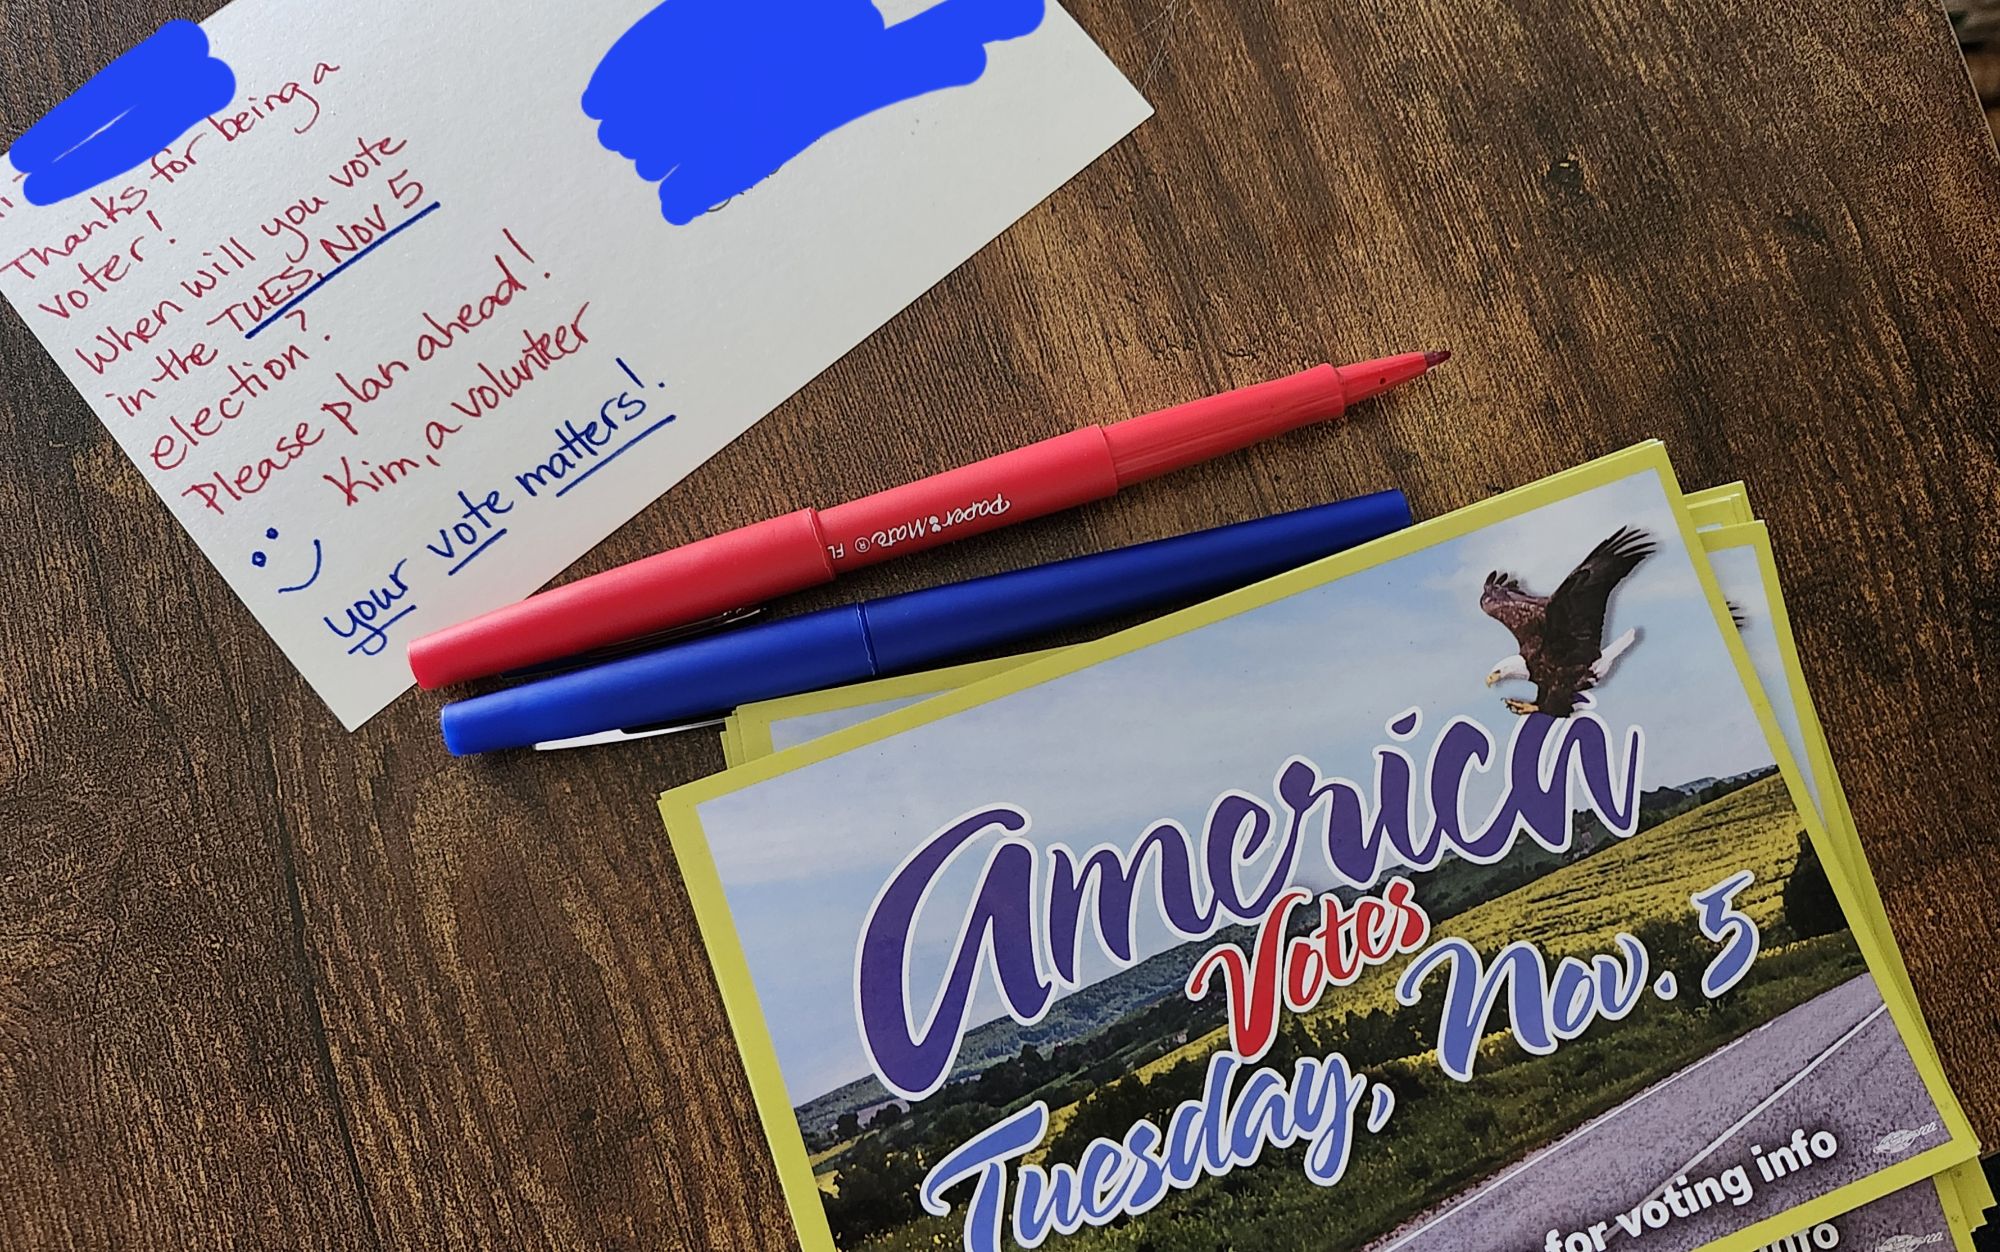 Thanks for being a
voter!
When will you vote
in the TUES, Nov 5
election?
Please plan ahead!
Kim, a volunteer
your vote matters!
Paper Mate ® FL
America
Votes
Tuesday, Nov. 5
for voting info
info